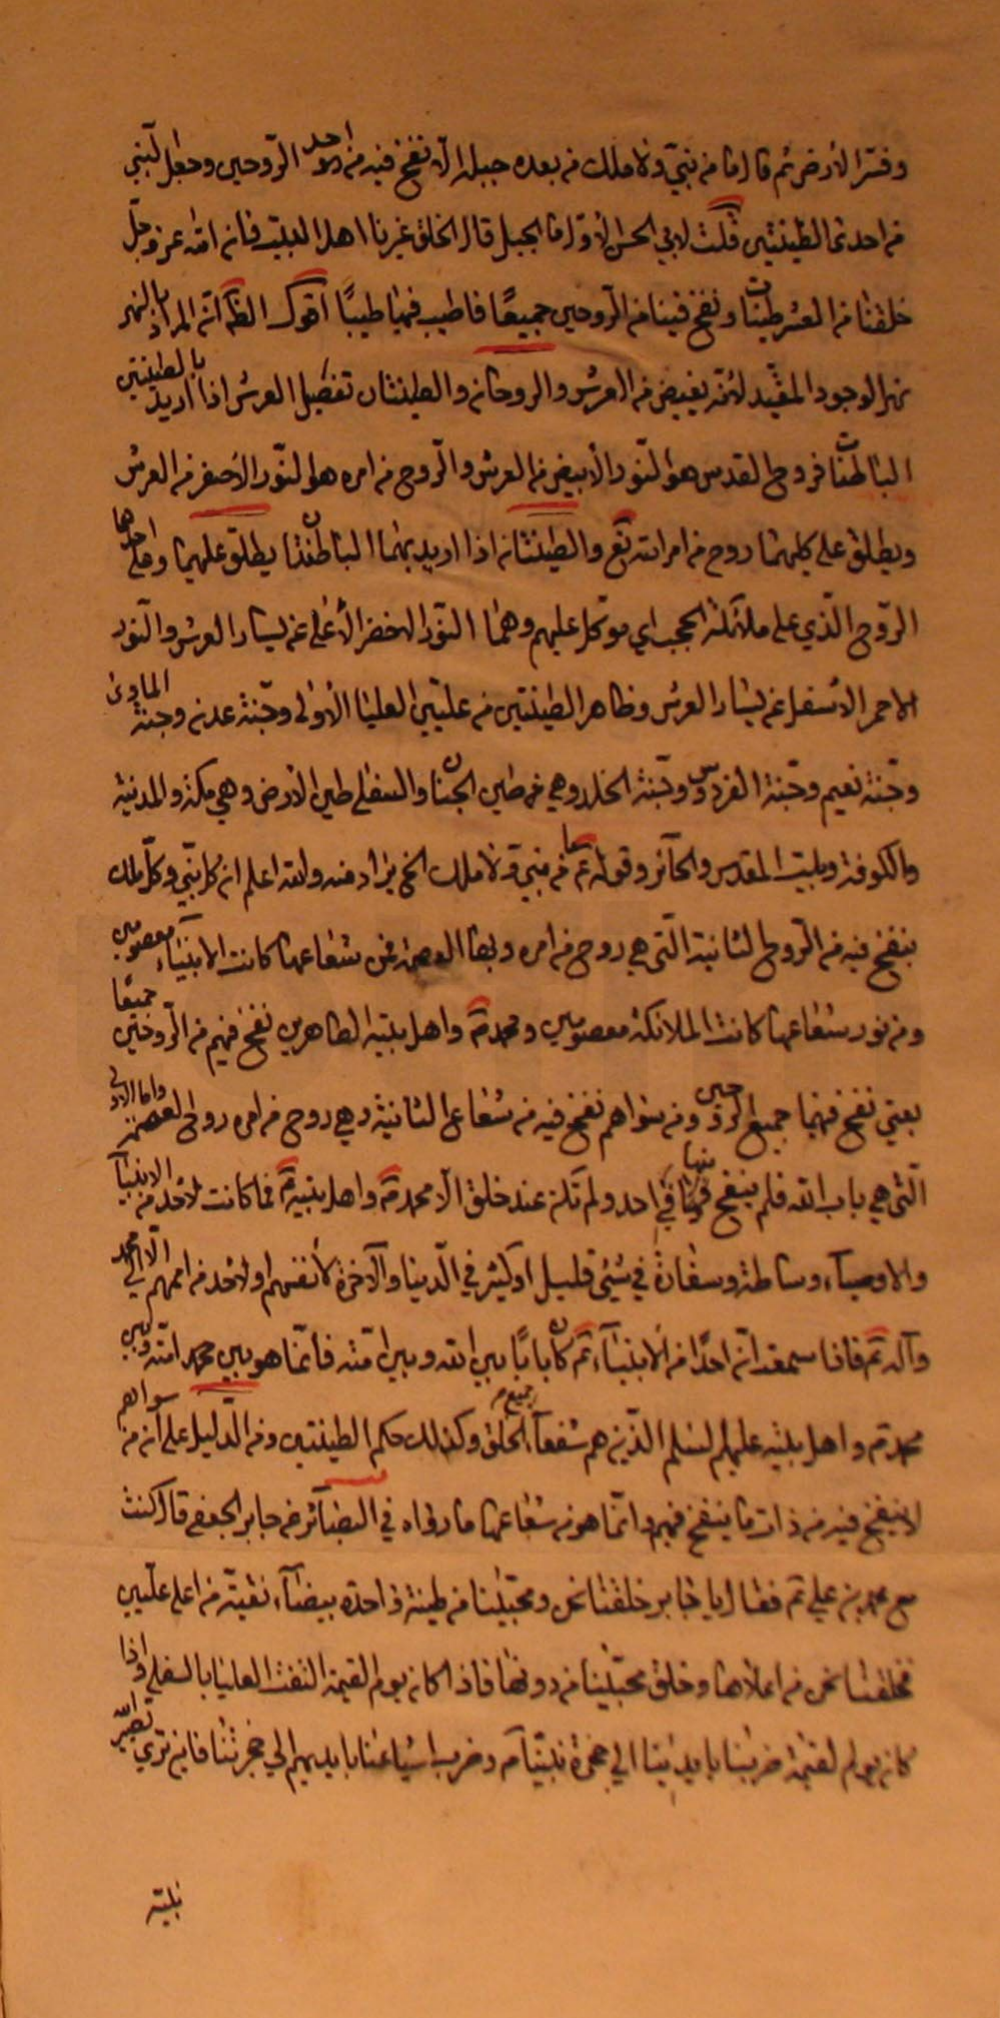 وفسّر الأرض ثم قال ما من نبيّ ولا ملك من بعده جبله الّا نفخ فيه من احد الرّوحين وجعل النّبيّ
من احدى الطينتين قلت لابي الحسن الأوّل ما الجبل قال الخلق غيرنا اهل البيت فانّ الله عز وجلّ
خلقنا من العشر طينات ونفخ فينا من الرّوحين جميعًا فاطيب فيها طيبًا اقول الظّ انّه المراد بالنهر
نهر الوجود المقيّد لانّه يفيض من العرش والروحان والطينتان تفصيل العرش اذا اريد بالطينتين
الباطنتان فروح القدس هو النّور الأبيض من العرش والرّوح من امره هو النّور الأصفر من العرش
ويطلق على كليهما روح من امر الله تع والطينتان اذا اريد بهما الباطنتان يطلق عليهما وعلى احدهما
الرّوح الّذي على ملائكة الحجب اي موكل عليهم وهما النّور الاخضر الأعلى عن يسار العرش والنّور
الاحمر الأسفل عن يسار العرش وظاهر الطينتين من علّيين العليا الأولى وجنّة عدن وجنّة المأوى
وجنّة نعيم وجنّة الفردوس وجنّة الخلد وهي من طين الجنان والسفلى طين الأرض وهي مكة والمدينة
والكوفة وبيت المقدس والحآئر وقوله ع ما من نبيّ ولا ملك الخ يراد منه والله اعلم ان كل نبيّ وكلّ ملك
ينفخ فيه من الرّوح الثانية الّتي هي روح من امره وبها العصمة فمن شعاعها كانت الأنبيآء معصومين
ومن نور شعاعها كانت الملائكة معصومين ومحمد ص واهل بيته الطاهرين نفخ فيهم من الرّوحين جميعًا
يعني نفخ فيهما جميع الرّوحين ومن سواهم نفخ فيه من شعاع الثانية وهي روح من امره روح العصمة واما الاولى
الّتي هي باب الله فلم ينفخ منها في احد ولم تكن عند خلق الّا محمد ص واهل بيته ع فما كانت لأحد من الانبيآء
والاوصيآء وساطة وسفارة في شيء قليل او كثير في الدّنيا والآخرة لأنفسهم او لأحد من اممهم الّا لمحمد
وآله ع فاذا سمعت انّ احدًا من الأنبيآء ع كان بابًا بين الله وبين امّته فانّما هو بين محمد امّته وبين
محمد ص واهل بيته عليهم السّلم الّذين هم شفعآء جميع الخلق وكذلك حكم الطينتين ومن الدّليل على انّ من سواهم
لا ينفخ فيه من ذات ما ينفخ فيهم وانّما هو من شعاعها ما رواه في البصآئر عن جابر الجعفي قال كنت
مع محمد بن علي ع فقال يا جابر خلقنا نحن ومحبّينا من طينة واحدة بيضآء نقيّة من اعلى علّيين
فخلقنا نحن من اعلاها وخلق محبّينا من دونها فاذا كان يوم القيمة التفت العليا بالسفلى واذا
كان يوم القيمة ضربنا بايدينا الى حجزة نبيّنا ص وضرب اشياعنا بايديهم الى حجزتنا فاين ترى يصيّر الله
نبيّه